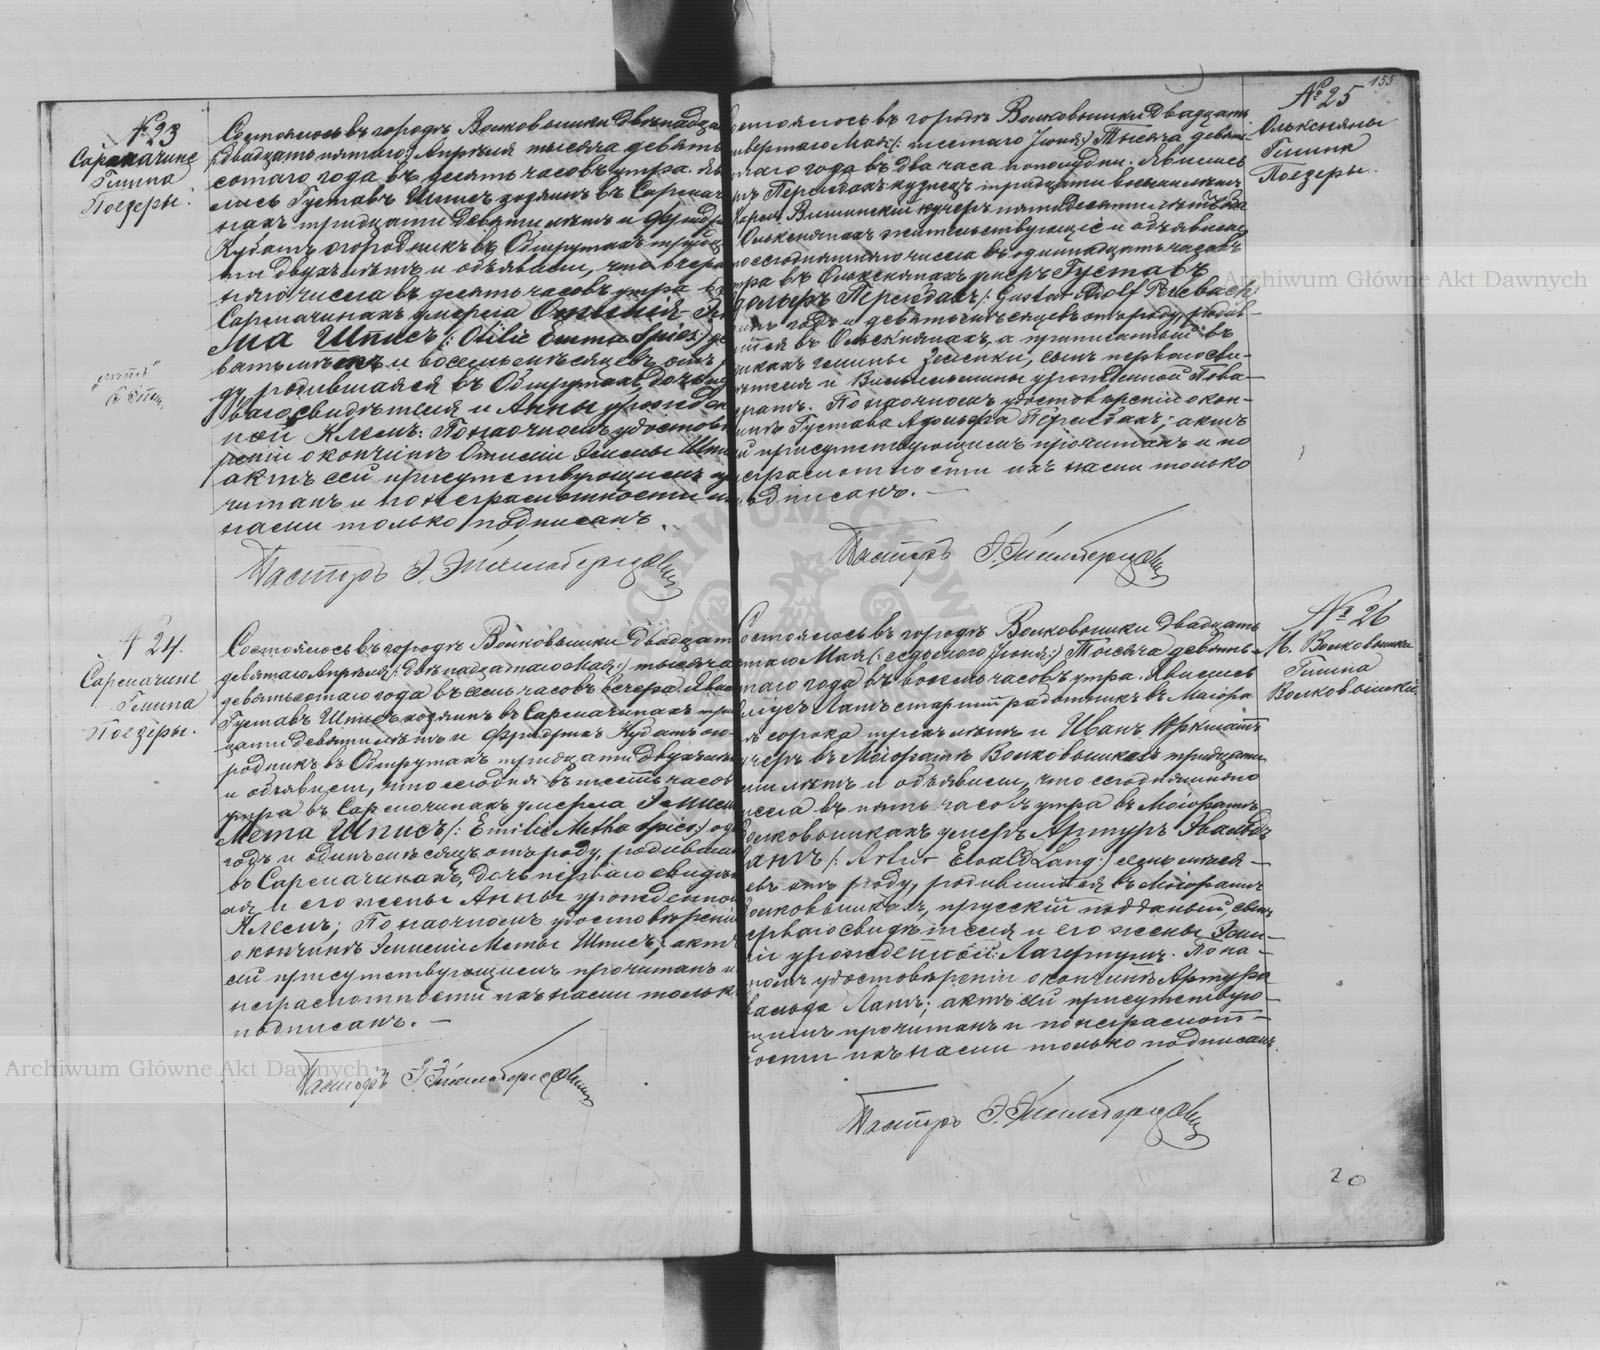 № 23
Сарпачине
Гмина
Поезеры.
Состоялось въ городѣ Волковышки двѣнадца
/двадцать пятаго/ Апрѣля тысяча девять
сотаго года въ десять часовъ утра. Яви
лись Густавъ Шписъ хозяинъ въ Сарпачи
нахъ тридцати девяти лѣтъ и Фридри
Кубатъ огородникъ въ Обшрутахъ тридца
ти двухъ лѣтъ и объявили, что вчера
няго числа въ десять часовъ утра въ
Сарпачинахъ умерла Отилія Эм
ма Шписъ /: Otilie Emma Spies :/ де
вять лѣтъ и восемь мѣсяцевъ отъ ро
ду, родившаяся въ Обшрутахъ, дочь пер
ваго свидѣтеля и Анны урожден
ной Клемъ. По наочномъ удостовѣ
реніи о кончинѣ Отиліи Эммы Шпи
актъ сей присутствующимъ про
читанъ и по неграмотности и
нами только подписанъ.
Пасторъ
№ 24.
Сарпачине
Гмина
Поезеры.
Состоялось въ городѣ Волковышки двадцать
девятаго Апрѣля /: двѣнадцатаго Мая :/ тысяча
девятьсотаго года въ семь часовъ вечера. Явил
Густавъ Шписъ хозяинъ въ Сарпачинахъ трид
цати девяти лѣтъ и Фридрихъ Кубатъ ого
родникъ въ Обшрутахъ тридцати двухъ лѣ
и объявили, что сегодня въ шесть часов
утра въ Сарпачинахъ умерла Эмилі
Мета Шписъ /: Emilie Metha Spies :/ оди
годъ и одинъ мѣсяцъ отъ роду, родивша
въ Сарпачинахъ, дочь перваго свидѣт
ля и его жены Анны урожденной
Клемъ; По наочномъ удостовѣреніи
о кончинѣ Эмиліи Меты Шписъ; актъ
сей присутствующимъ прочитанъ и
неграмотности ихъ нами только
подписанъ. —
Пасторъ
155
№ 25
Ольксняны
Гмина
Поезеры.
остоялось въ городѣ Волковышки двадцать
твертаго Мая /: шестаго Іюня :/ Тысяча девять
таго года въ два часа пополудни. Явились
кузнецъ тридцати восьми лѣтъ
Вишинскій кучеръ пятидесяти лѣтъ въ
Олькснянахъ жительствующіе и объявили
то сегодняшняго числа въ одинадцать часовъ
тра въ Олькснянахъ умеръ Густавъ
дольфъ Перлбахъ /: Gustav Adolf Perlbach :/
инъ годъ и девять мѣсяцевъ отъ роду, родив-
шійся въ Олькснянахъ, а приписанный въ
гмины Зеленки, сынъ перваго сви-
дѣтеля и Вильгельмины урожденной
По наочномъ удостовѣреніи о кон-
инѣ Густава Адольфа Перлбахъ; актъ
й присутствующимъ прочитанъ и по
еграмотности ихъ нами только
одписанъ. —
Пасторъ
№ 26
М. Волковышки
Гмина
Волковышки.
остоялось въ городѣ Волковышки двадцать
таго Мая /: седьмого Іюня :/ Тысяча девять-
таго года въ восемь часовъ утра. Явились
Лангъ старшій работникъ въ Маіора
ѣ сорока трехъ лѣтъ и Иванъ
учеръ въ Маіоратѣ Волковышкахъ тридцати
ми лѣтъ и объявили, что сегодняшняго
исла въ пять часовъ утра въ Маіоратѣ
олковышкахъ умеръ Артуръ Эвальдъ
ангъ /: Artur Ewald Lang :/ семь мѣся-
евъ отъ роду, родившійся въ Маіоратѣ
олковышкахъ, прусскій подданный, сынъ
ерваго свидѣтеля и его жены Эми-
іи урожденной Лагертумъ. По на-
номъ удостовѣреніи о кончинѣ Артура
вальда Лангъ; актъ сей присутствую-
щимъ прочитанъ и по неграмот-
ости ихъ нами только подписанъ.
Пасторъ
20
Archiwum Główne Akt Dawnych
Archiwum Główne Akt Dawnych